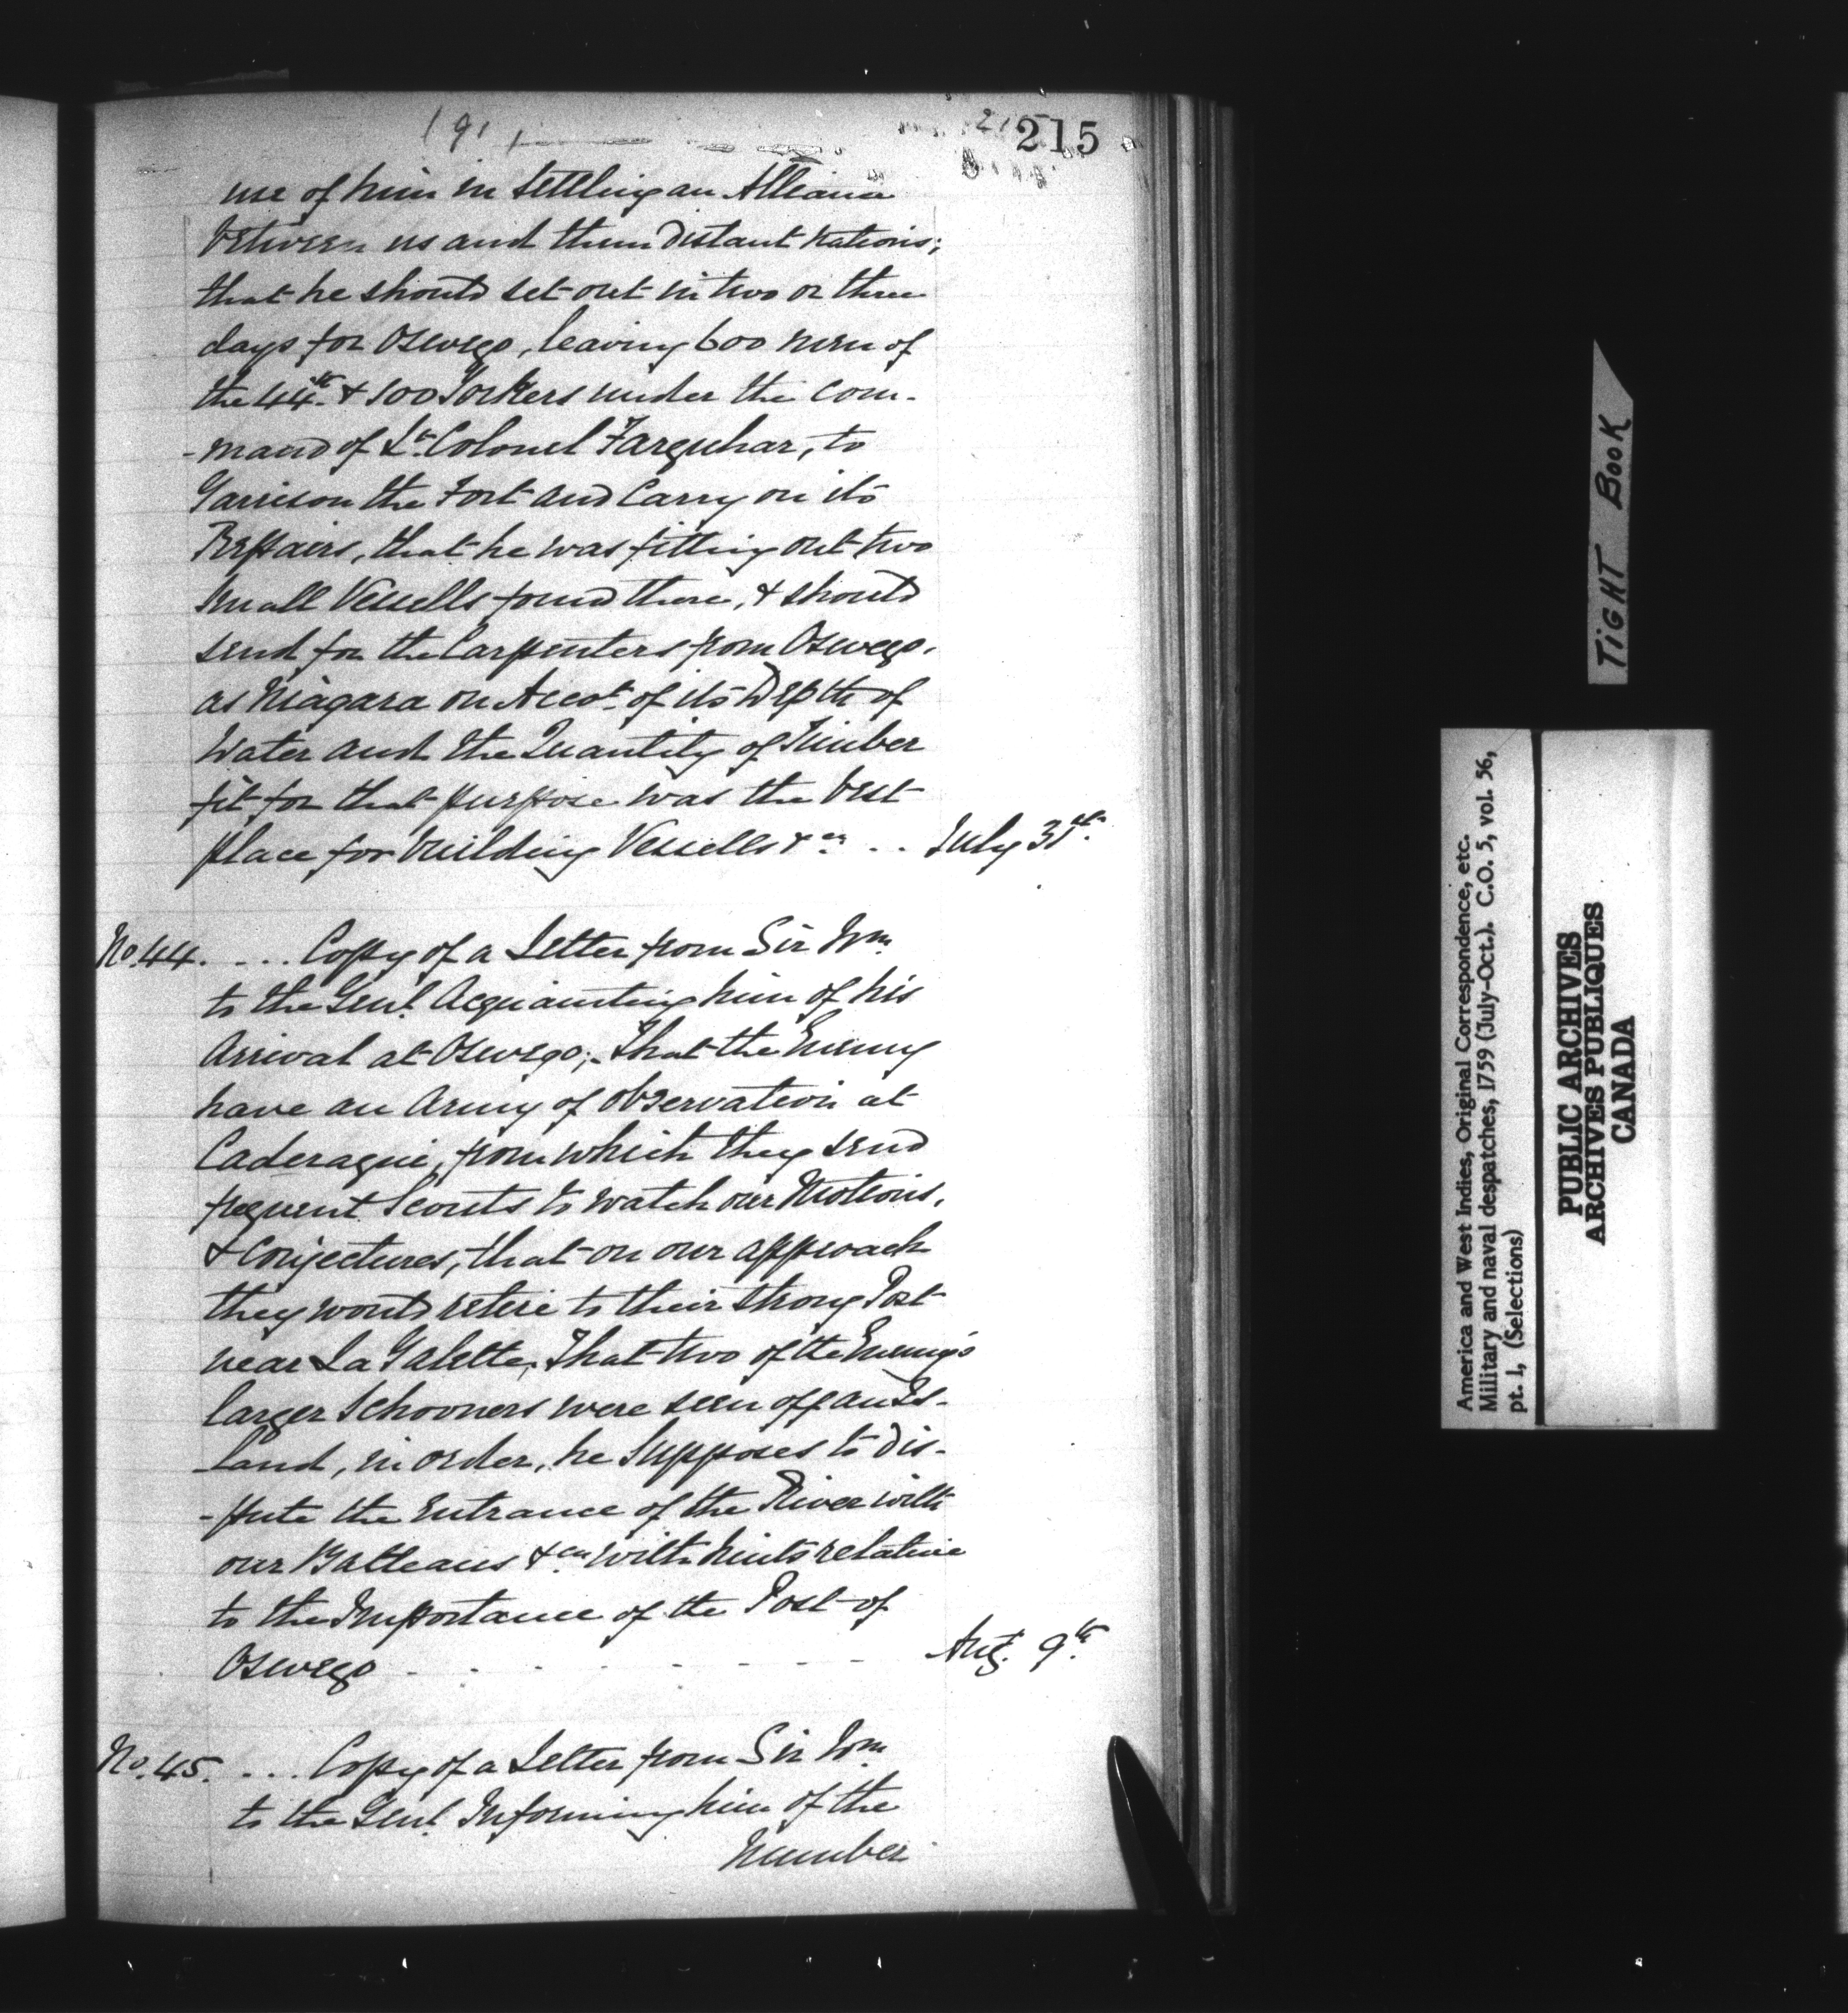 191
215
use of him in settling an Alliance
between us and them distant Nations;
that he should set out in two or three
days for Oswego, leaving 600 men of
the 44th & 100 Yorkers under the com-
-mand of Lt. Colonel Farquhar, to
Garrison the Fort and Carry on its
Repairs, that he was fitting out two
small Vessells found there, & should
send for the Carpenters from Oswego,
as Niagara on Accot. of its Depth of
Water and the Quantity of Timber
fit for that purpose was the best
place for building Vessells &ca. .. July 31st.
No. 44. ... Copy of a Letter from Sir Wm.
to the Genl. Acquainting him of his
Arrival at Oswego; - That the Enemy
have an Army of observation at
Caderaqui, from which they send
frequent Scouts to watch our Motions,
& Conjectures, that on our approach
they would retire to their strong Post
near La Galette, That two of the Enemy's
larger Schooners were seen off an Is-
-land, in order, he supposes to dis-
-pute the Entrance of the River with
our Batteaus &ca. with hints relative
to the Importance of the Post of
Oswego - - - - - - - - Aug. 9th.
No. 45. ... Copy of a Letter from Sir Wm.
to the Genl. Informing him of the
Number
TIGHT BOOK
America and West Indies, Original Correspondence, etc.
Military and naval despatches, 1759 (July-Oct.). C.O. 5, vol. 56,
pt. 1, (Selections)
PUBLIC ARCHIVES
ARCHIVES PUBLIQUES
CANADA